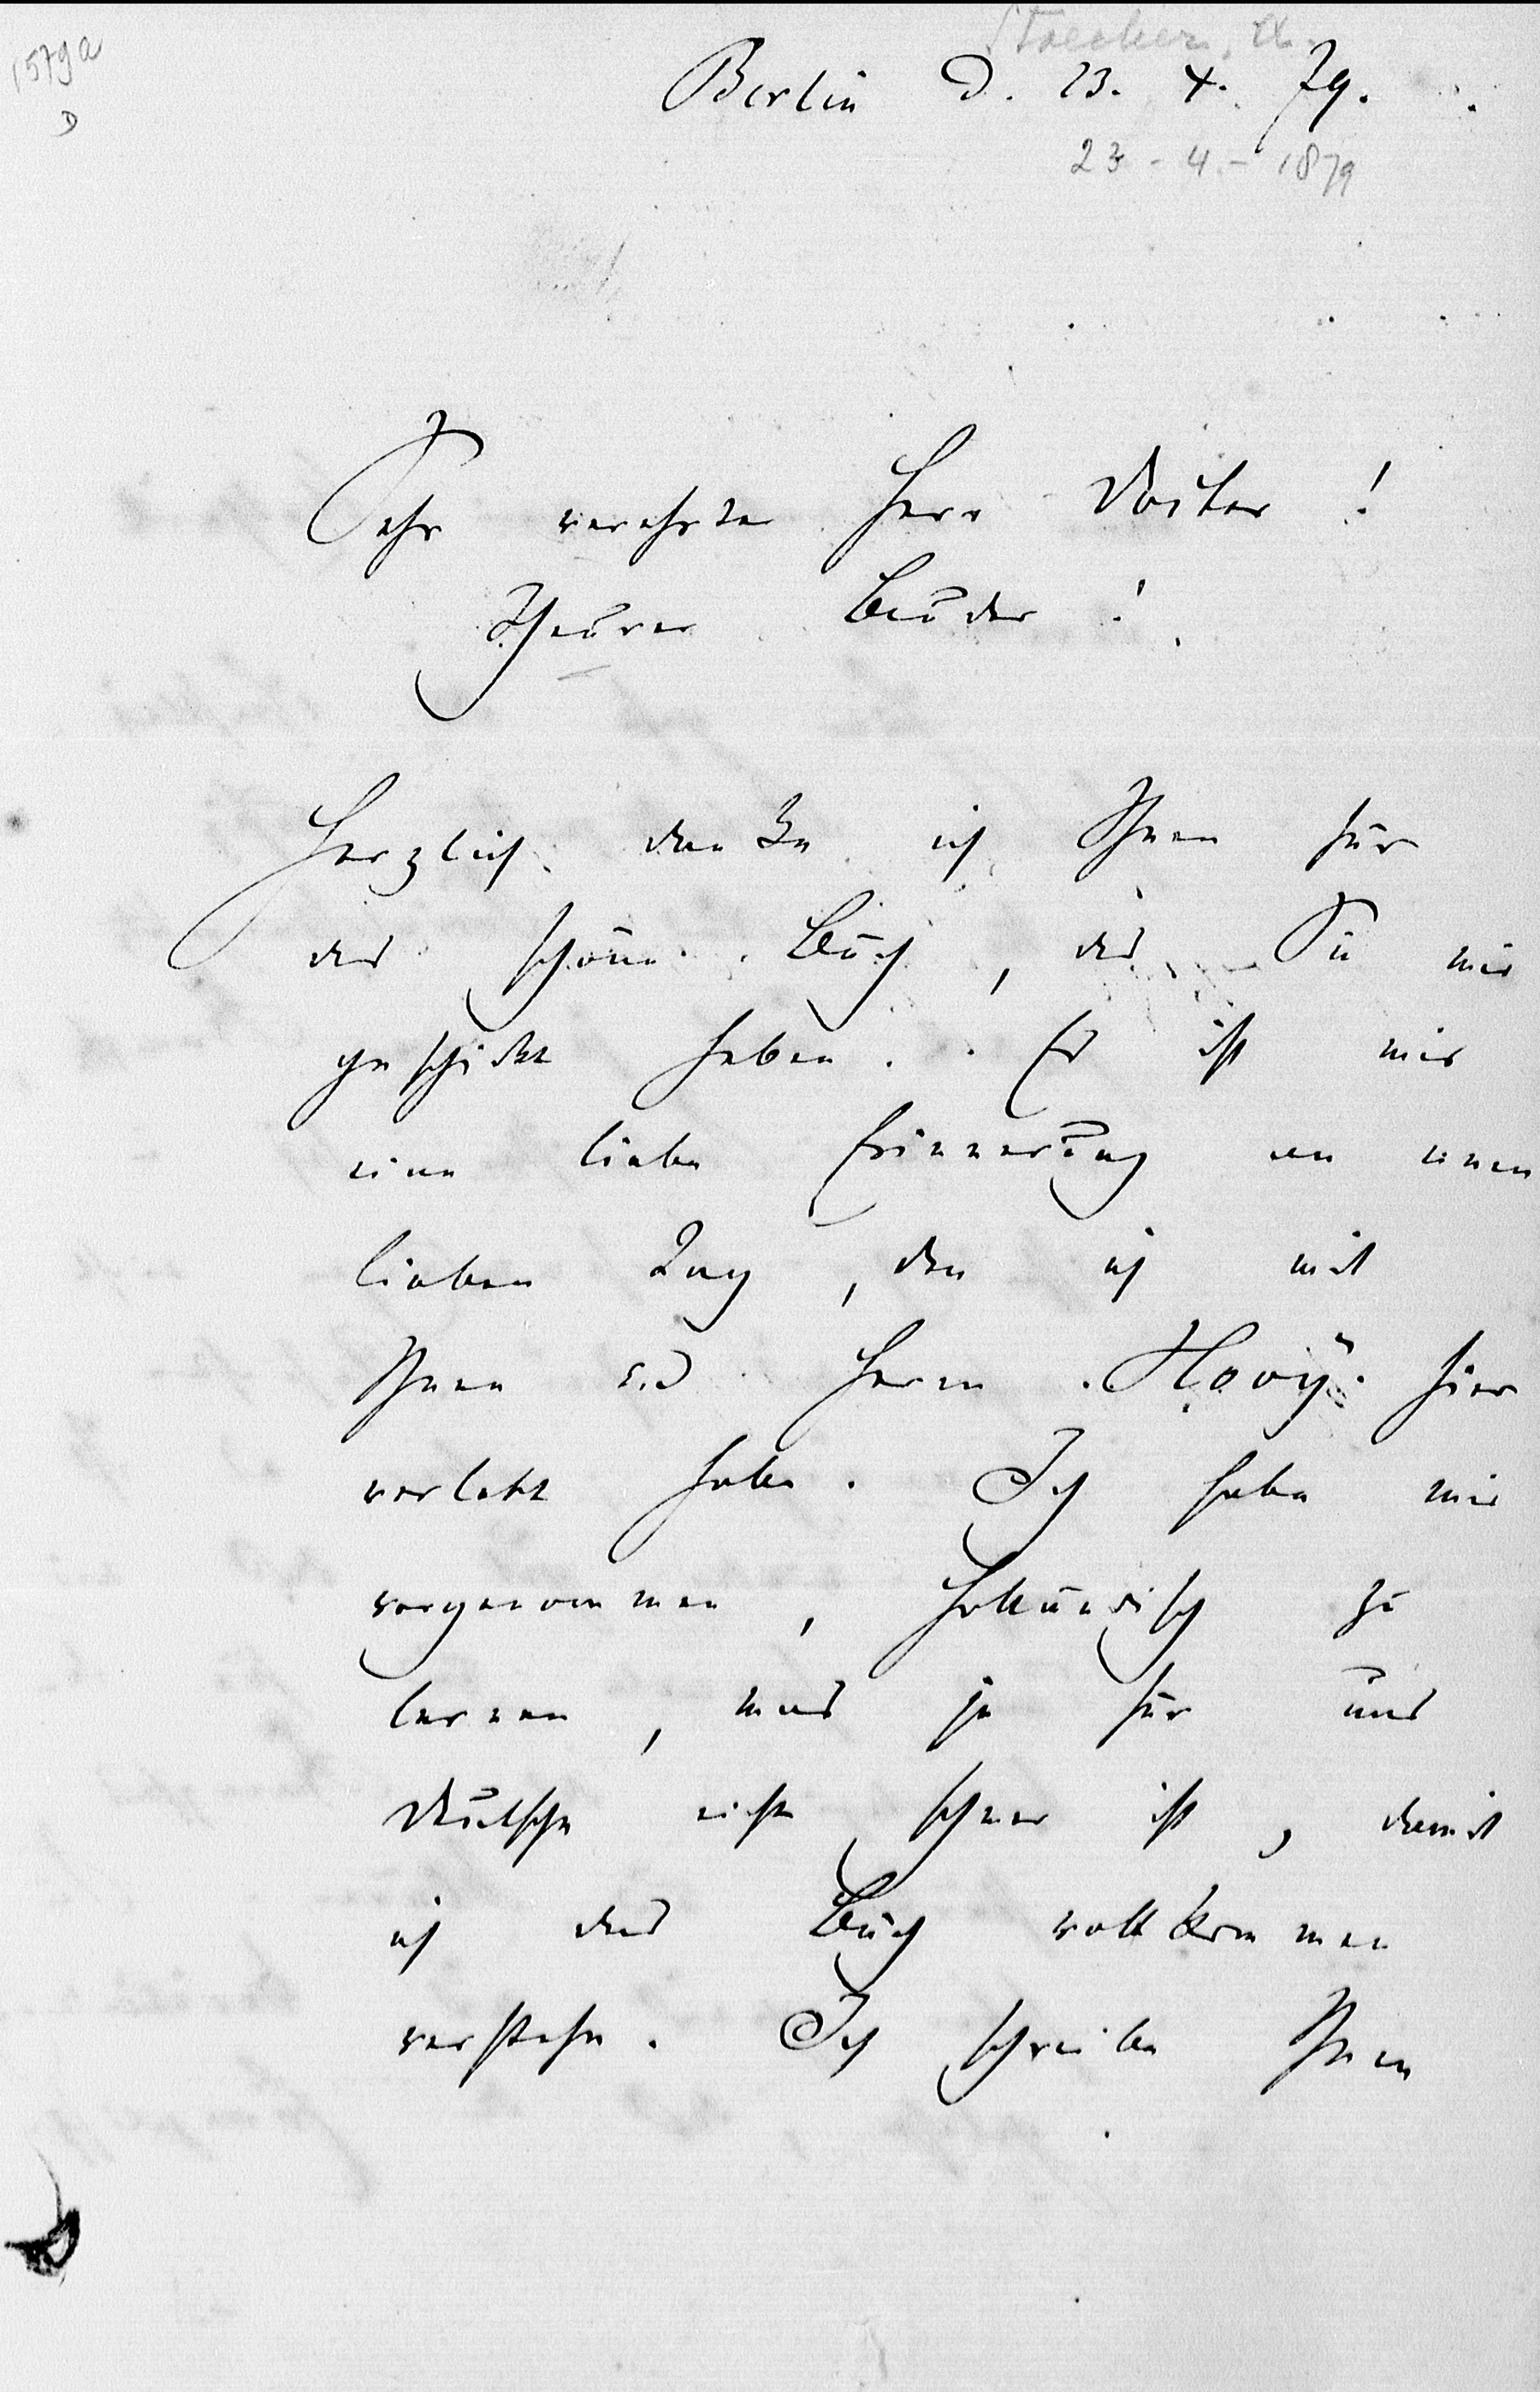 1579a
D
Stoecker, A.
Berlin d. 23. 4. 79.
23-4-1879
Sehr verehrter Herr Doctor!
Theurer Bruder!
Herzlich danke ich Ihnen für
das schöne Buch, das Sie mir
geschickt haben. Es ist mir
eine liebe Erinnerung an einen
lieben Tag, den ich mit
Ihnen und Herrn Hovÿ hier
verlebt habe. Ich habe mir
vorgenommen, holländisch zu
lernen, was ja für uns
Deutsche nicht schwer ist, damit
ich das Buch vollkommen
verstehe. Ich schreibe Ihnen